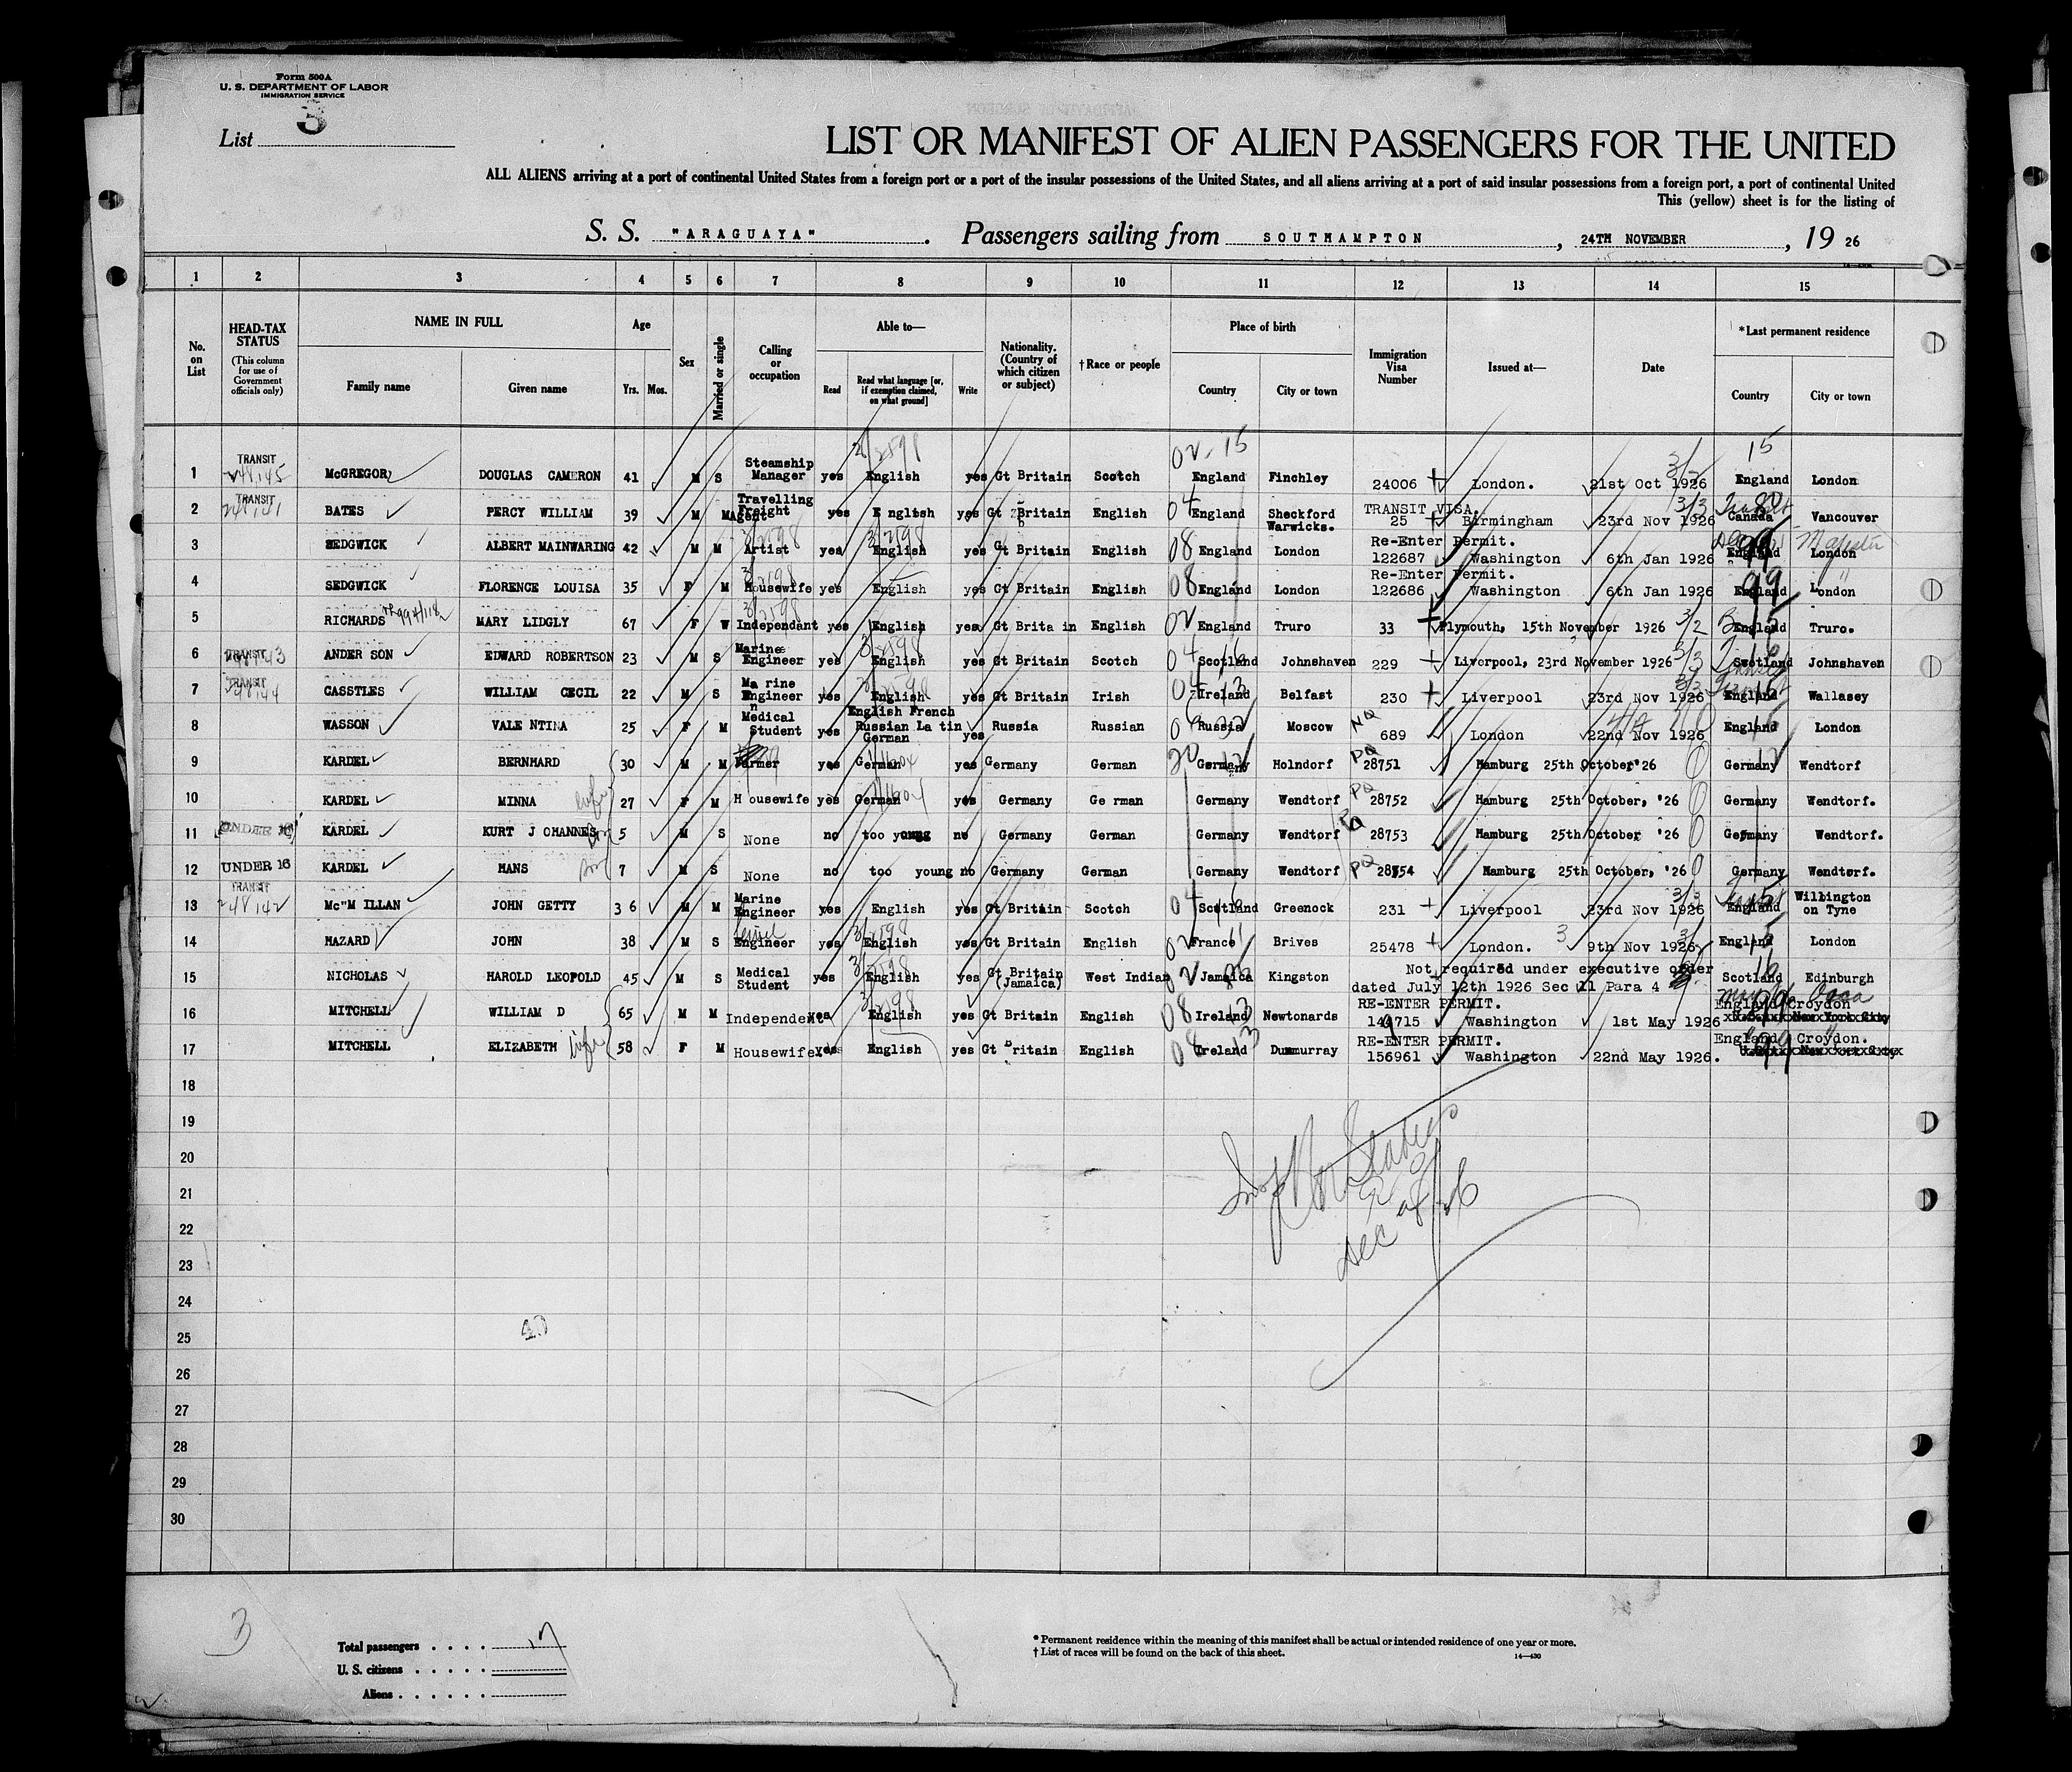 Form 500A
U. S. DEPARTMENT OF LABOR
IMMIGRATION SERVICE
List 3
LIST OR MANIFEST OF ALIEN PASSENGERS FOR THE UNITED
ALL ALIENS arriving at a port of continental United States from a foreign port or a port of the insular possessions of the United States, and all aliens arriving at a port of said insular possessions from a foreign port, a port of continental United
This (yellow) sheet is for the listing of
S. S. "ARAGUAYA". Passengers sailing from SOUTHAMPTON, 24TH NOVEMBER, 19 26
1 2 3 4 5 6 7 8 9 10 11 12 13 14 15
No. on List
HEAD-TAX STATUS (This column for use of Government officials only)
NAME IN FULL Family name Given name
Age Yrs. Mos.
Sex
Married or single
Calling or occupation
Able to— Read Read what language [or, if exemption claimed, on what ground] Write
Nationality. (Country of which citizen or subject)
†Race or people
Place of birth Country City or town
Immigration Visa Number
Issued at—
Date
*Last permanent residence Country City or town
1 TRANSIT 248,145 McGREGOR DOUGLAS CAMERON 41 M S Steamship Manager yes English yes Gt Britain Scotch England Finchley 24006 London. 21st Oct 1926 England London
2 TRANSIT 248,141 BATES PERCY WILLIAM 39 M M Travelling Freight Agent yes English yes Gt Britain English England Sheckford Warwicks. TRANSIT VISA. 25 Birmingham 23rd Nov 1926 Canada Vancouver
3 SEDGWICK ALBERT MAINWARING 42 M M Artist yes English yes Gt Britain English England London Re-Enter Permit. 122687 Washington 6th Jan 1926 England London
4 SEDGWICK FLORENCE LOUISA 35 F M Housewife yes English yes Gt Britain English England London Re-Enter Permit. 122686 Washington 6th Jan 1926 England London
5 RICHARDS MARY LIDGLY 67 F W Independant yes English yes Gt Brita in English England Truro 33 Plymouth, 15th November 1926 England Truro.
6 TRANSIT 248,143 ANDER SON EDWARD ROBERTSON 23 M S Marine Engineer yes English yes Gt Britain Scotch Scotland Johnshaven 229 Liverpool, 23rd November 1926 Scotland Johnshaven
7 TRANSIT 248,144 CASSTLES WILLIAM CECIL 22 M S Ma rine Engineer yes English yes Gt Britain Irish Ireland Belfast 230 Liverpool 23rd Nov 1926 England Wallasey
8 WASSON VALE NTINA 25 F M Medical Student yes English French Russian La tin German yes Russia Russian Russia Moscow NQ 689 London 22nd Nov 1926 England London
9 KARDEL BERNHARD 30 M M Farmer yes German yes Germany German Germany Holndorf PQ 28751 Hamburg 25th October '26 Germany Wendtorf
10 KARDEL MINNA wife 27 F M H ousewife yes German yes Germany Ge rman Germany Wendtorf PQ 28752 Hamburg 25th October, '26 Germany Wendtorf.
11 UNDER 16 KARDEL KURT J OHANNES son 5 M S None no too young no Germany German Germany Wendtorf 28753 Hamburg 25th October '26 Germany Wendtorf.
12 UNDER 16 KARDEL HANS son 7 M S None no too young no Germany German Germany Wendtorf PQ 28754 Hamburg 25th October, '26 Germany Wendtorf.
13 TRANSIT 248,142 Mc"M ILLAN JOHN GETTY 3 6 M M Marine Engineer yes English yes Gt Britain Scotch Scotland Greenock 231 Liverpool 23rd Nov 1926 England Willington on Tyne
14 HAZARD JOHN 38 M S Engineer yes English yes Gt Britain English France Brives 25478 London. 9th Nov 1926 England London
15 NICHOLAS HAROLD LEOPOLD 45 M S Medical Student yes English yes Gt Britain (Jamaica) West Indian Jamaica Kingston Not required under executive order dated July 12th 1926 Sec 11 Para 4 Scotland Edinburgh
16 MITCHELL WILLIAM D 65 M M Independent yes English yes Gt Britain English Ireland Newtonards RE-ENTER PERMIT. 149715 Washington 1st May 1926 England Croydon
17 MITCHELL ELIZABETH wife 58 F M Housewife yes English yes Gt Britain English Ireland Dunmurray RE-ENTER PERMIT. 156961 Washington 22nd May 1926. England Croydon.
18
19
20
21
22
23
24
25
26
27
28
29
30
40
3
Total passengers . . . . 17
U. S. citizens . . . . .
Aliens . . . . . .
* Permanent residence within the meaning of this manifest shall be actual or intended residence of one year or more.
† List of races will be found on the back of this sheet.
14—430